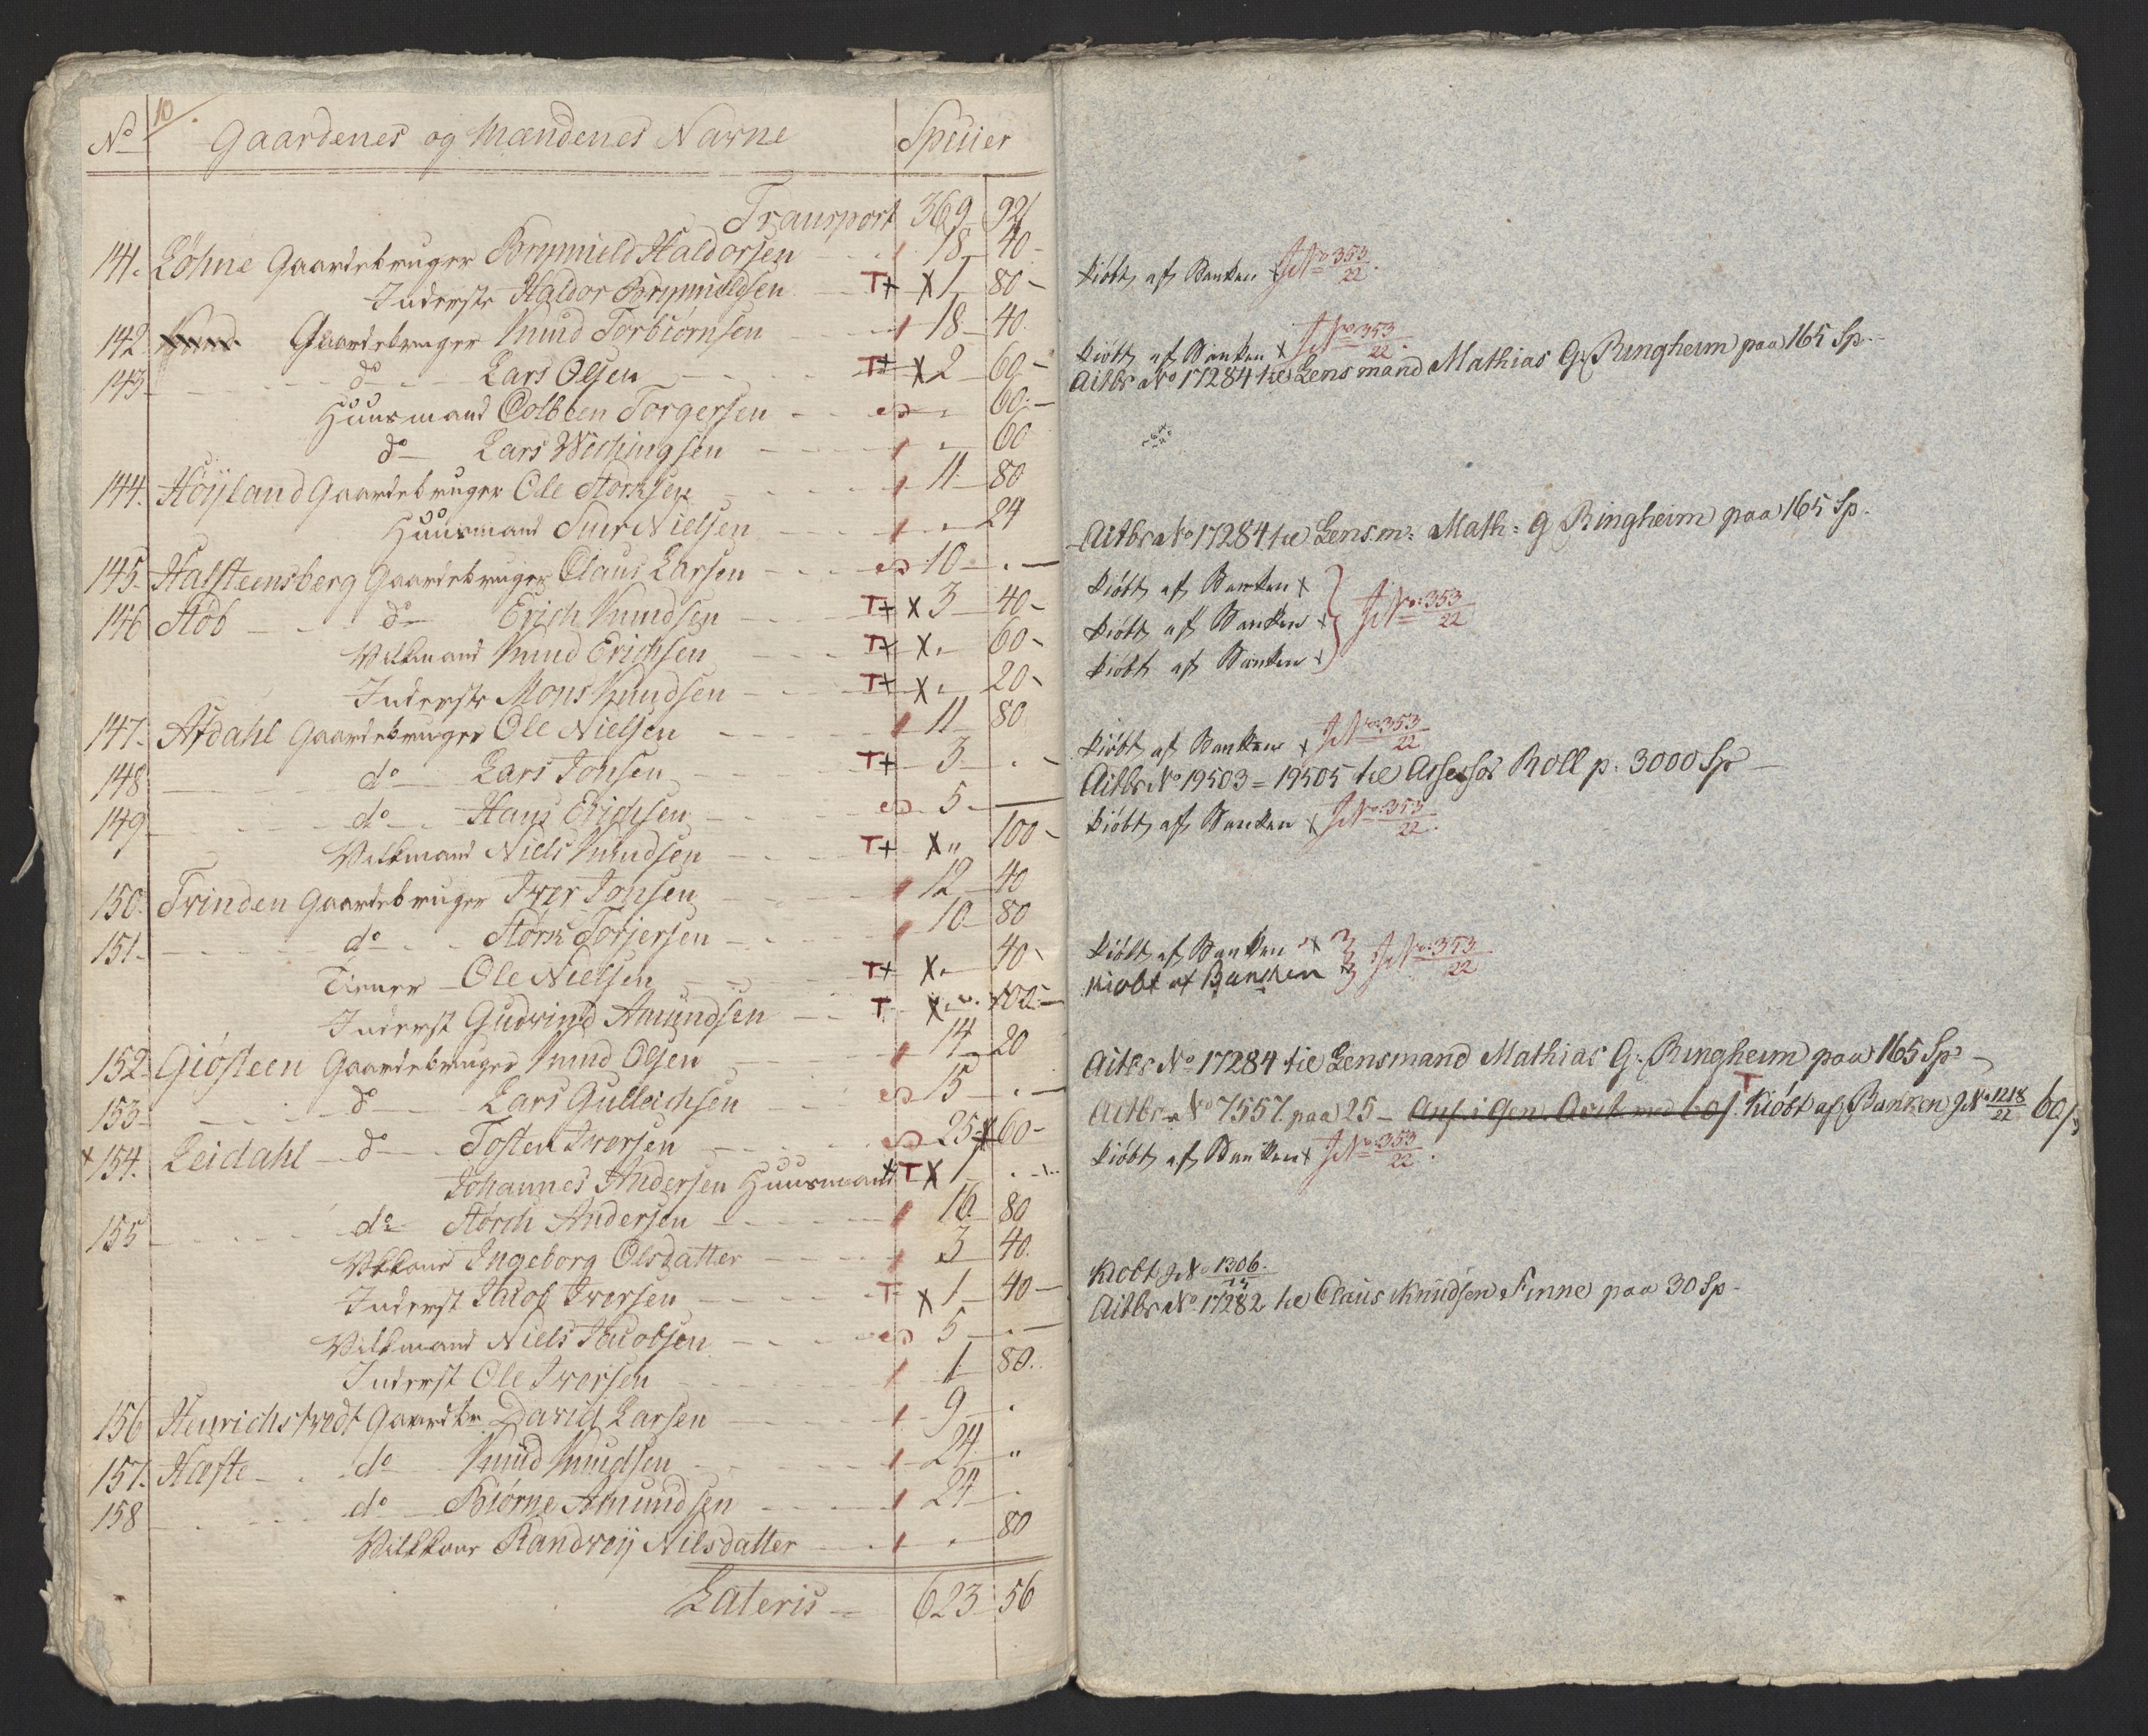 10
No Gaardenes og Mændenes Navne Speciier
Transport 369 92
141. Løhne Gaardebruger Brynnield Haldorsen 18 40
Inderste Haldor Brynnieldsen T+ x 1 80
142 Gaardebruger Knud Torbiørnsen 18 40
143 do Lars Olsen T+ x 2 60
Huusmand Colbeen Torgersen 60
do Lars Wechingsen 60
144. Høyland Gaardebruger Ole Størksen 11 80
Huusmand Siur Nielsen 24
145. Halsteensberg Gaardebruger Claus Larsen 10
146 Støb do Erich Knudsen T+ x 3 40
Vilkmand Knud Erichsen T+ x 60
Inderste Mons Knudsen T+ x 20
147. Afdahl Gaardebruger Ole Nielsen 11 80
148 do Lars Jonsen T+ 3
149 do Hans Erichsen 5
Vilkmand Niels Knudsen T+ x 100
150. Trinden Gaardebruger Iver Jonsen 12 40
151. do Størk Torjersen 10 80
Tiener Ole Nielsen T+ x 40
Inderst Gudrind Amundsen T x 102
152 Giøsteen Gaardebruger Knud Olsen 14 20
153 do Lars Gulleichsen 15
x 154. Leidahl do Tosten Iversen 25 60
Johannes Andersen Huusmand T x 1
155 do Størch Andersen 16 80
Vilkaar Ingeborg Olsdatter 3 40
Inderst Jacob Iversen T x 1 40
Vilkmand Niels Jacobsen 5
Inderst Ole Iversen 1 80
156 Henrichstvedt Gaardbr David Larsen 9
157. Hæfte do Knud Knudsen 24 "
158 do Biørne Amundsen 24
Vilkaar Randvey Nilsdatter 80
Lateris 623 56
kiøbt af Banken x J No 353/22.
kiøbt af Banken x J No 353/22.
Actbr No 17284 til Lensmand Mathias G. Ringheim paa 165 Sp.
Actbr No 17284 til Lensm: Math: G Ringheim paa 165 Sp.
kiøbt af Banken x
kiøbt af Banken x J No: 353/22
kiøbt af Banken x
kiøbt af Banken x J No: 353/22
Actbr No 19503 = 19505 til Assessor Roll p. 3000 Sp
kiøbt af Banken x J No: 353/22.
kiøbt af Banken x J No: 353/22
kiobt af Banchen x
Actbr No 17284 til Lensmand Mathias G. Ringheim paa 165 Sp
Actbr No 7557. paa 25 – T Kiøbt af Banken J No 1218/22 60 ß
kiøbt af Banken x J No: 353/22.
Kiobt J No 1306.
Actbr No 17282 til Claus Knudsen Finne paa 30 Sp.